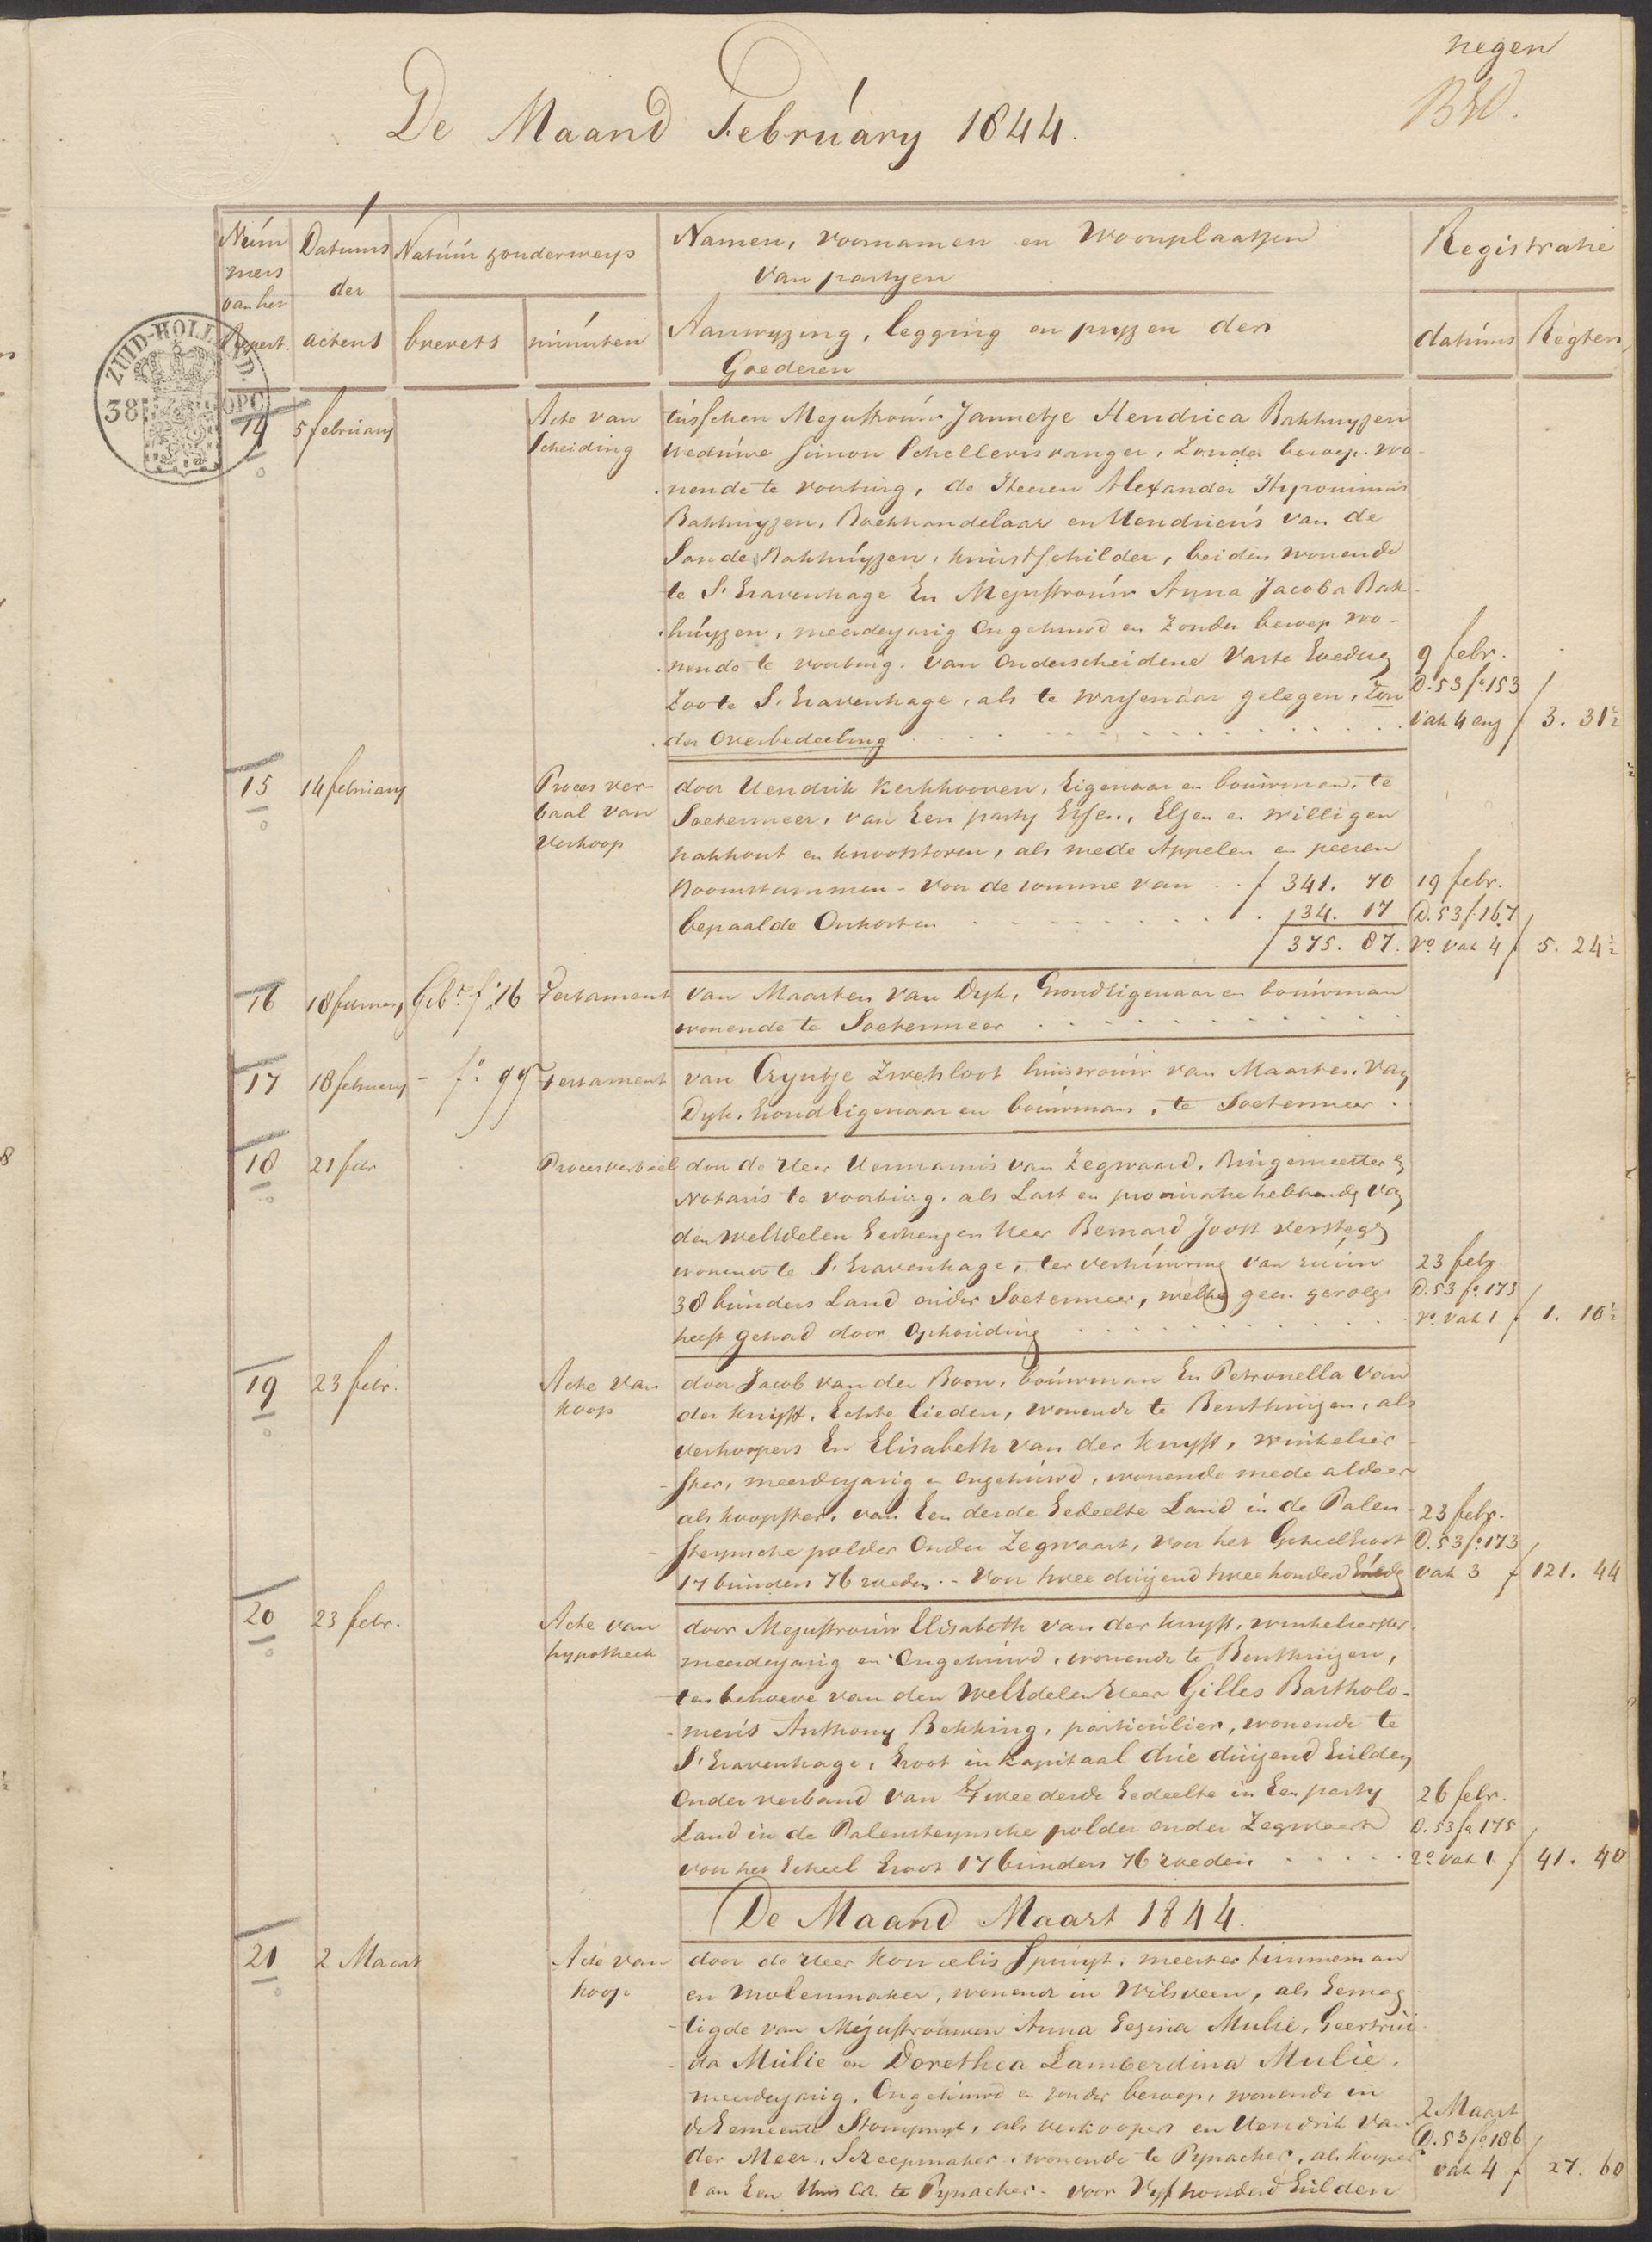 negen
De Maand February 1844.
Num
mers
van het
Repert.
Datums
der
actens
Natuur zonderweys
brevets
minuten
Namen, voornamen en Woonplaatsen
van partyen
Aanwyzing, legging en pryzen der
Goederen
Registratie
datums
Regten
ZUID-HOLLAND.
38
OPC
14 5 february Acte van
Scheiding
tusschen Mejuffrouw Jannetje Hendrica Bakhuyzen
weduwe Simon Schellevisvanger, Zonder beroep. wo-
nende te voorburg, de Heeren Alexander Hyronimus
Bakhuyzen, Boekhandelaar en Hendricus van de
Sande Bakhuyzen, kunstschilder, beiden wonende
te S. Gravenhage En Mejuffrouw Anna Jacoba Bak-
huyzen, meerderjarig Ongehuwd en Zonder beroep wo-
nende te voorburg. van Onderscheidene Vaste Goedren
Zoo te S. Gravenhage, als te Wassenaar gelegen, Zon
der Overbedeeling
9 febr.
D. 53 fo 153
vak 4 en f 3. 31½
15 14 february Proces ver-
baal van
Verkoop
door Hendrik Kerkhooven, Eigenaar en bouwman, te
Soetermeer, van Een party Essen, Elzen en Willigen
hakhout en knootstoven, als mede Appelen en peeren
Boomstammen - Voor de somme van f 341. 70
bepaalde Onkosten 34. 17
f 375. 87.
19 febr.
D. 53 f. 167
vo vak 4 f 5. 24½
16 18 february Gebr. f. 26 Testament van Maarten van Dyk, Grondeigenaar en bouwman
wonende te Soetermeer
17 18 february - fo. 99 Testament van Cryntje Zwetsloot huisvrouw van Maarten van
Dyk. Grondeigenaar en bouwman, te Soetermeer
18 21 febr Proces verbaal door de Heer Hermanus van Zegwaard, Burgemeester &
Notaris te voorburg. als Last en procuratie hebbende van
den WelEdelen Gestrengen Heer Bernard Joost Verstege
wonende te S. Gravenhage, ter verhuuring van ruim
38 bunders Land onder Soetermeer, welke geen gevolg
heeft gehad door Ophouding
23 febr.
D. 53 fo. 173
ro. vak 1 f 1. 10½
19 23 febr. Acte van
koop
door Jacob van der Boon, bouwman En Petronella van
der Knyff, Echte lieden, wonende te Benthuizen, als
verkoopers En Elisabeth van der Knyff, winkelier-
ster, meerderjarig en Ongehuwd, wonende mede aldaar
als koopster, van Een derde Gedeelte Land in de Palen-
steynsche polder Onder Zegwaart, Voor het Geheel Groot
17 bunders 76 roeden.- Voor twee duizend twee honderd Gulden
23 febr.
D. 53 fo 173
vak 3 f 121. 44
20 23 febr. Acte van
hypotheek
door Mejuffrouw Elisabeth van der Knyff, winkelierster
meerderjarig en Ongehuwd, wonende te Benthuizen,
ten behoeve van den WelEdelen Heer Gilles Bartholo-
meus Anthony Bekking, particulier, wonende te
S. Gravenhage, Groot in Kapitaal drie duizend Gulden
Onder verband van tweederde Gedeelte in Een party
Land in de Palensteynsche polder onder Zegwaart
voor het Geheel Groot 17 bunders 76 roeden
26 febr.
D. 53 fo 175
ro. vak 1. f 41. 40
De Maand Maart 1844.
21 2 Maart Acte van
koop
door de Heer Kornelis Spruyt, meester timmerman
en molenmaker, wonende in Wilsveen, als Gemag-
tigde van Mejuffrouwen Anna Gezina Mulié, Geertrui-
da Mulie en Dorethea Lamberdina Mulié,
meerderjarig, Ongehuwd en zonder beroep, wonende in
de Gemeente Stompwyk, als verkoopers en Hendrik van
der Meer, Scheepmaker, wonende te Pynacker, als kooper
van Een Huis C.A. te Pynacker - voor Vyf honderd Gulden
2 Maart
D. 53 fo 186
vak 4 f 27. 60